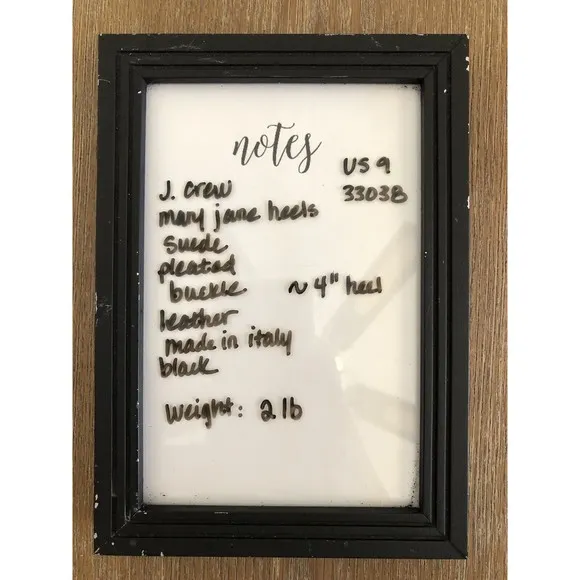 notes
US 9
33038
J. Crew
mary jane heels
suede
pleated
buckle
~ 4" heel
leather
made in italy
black
Weight: 2 lb